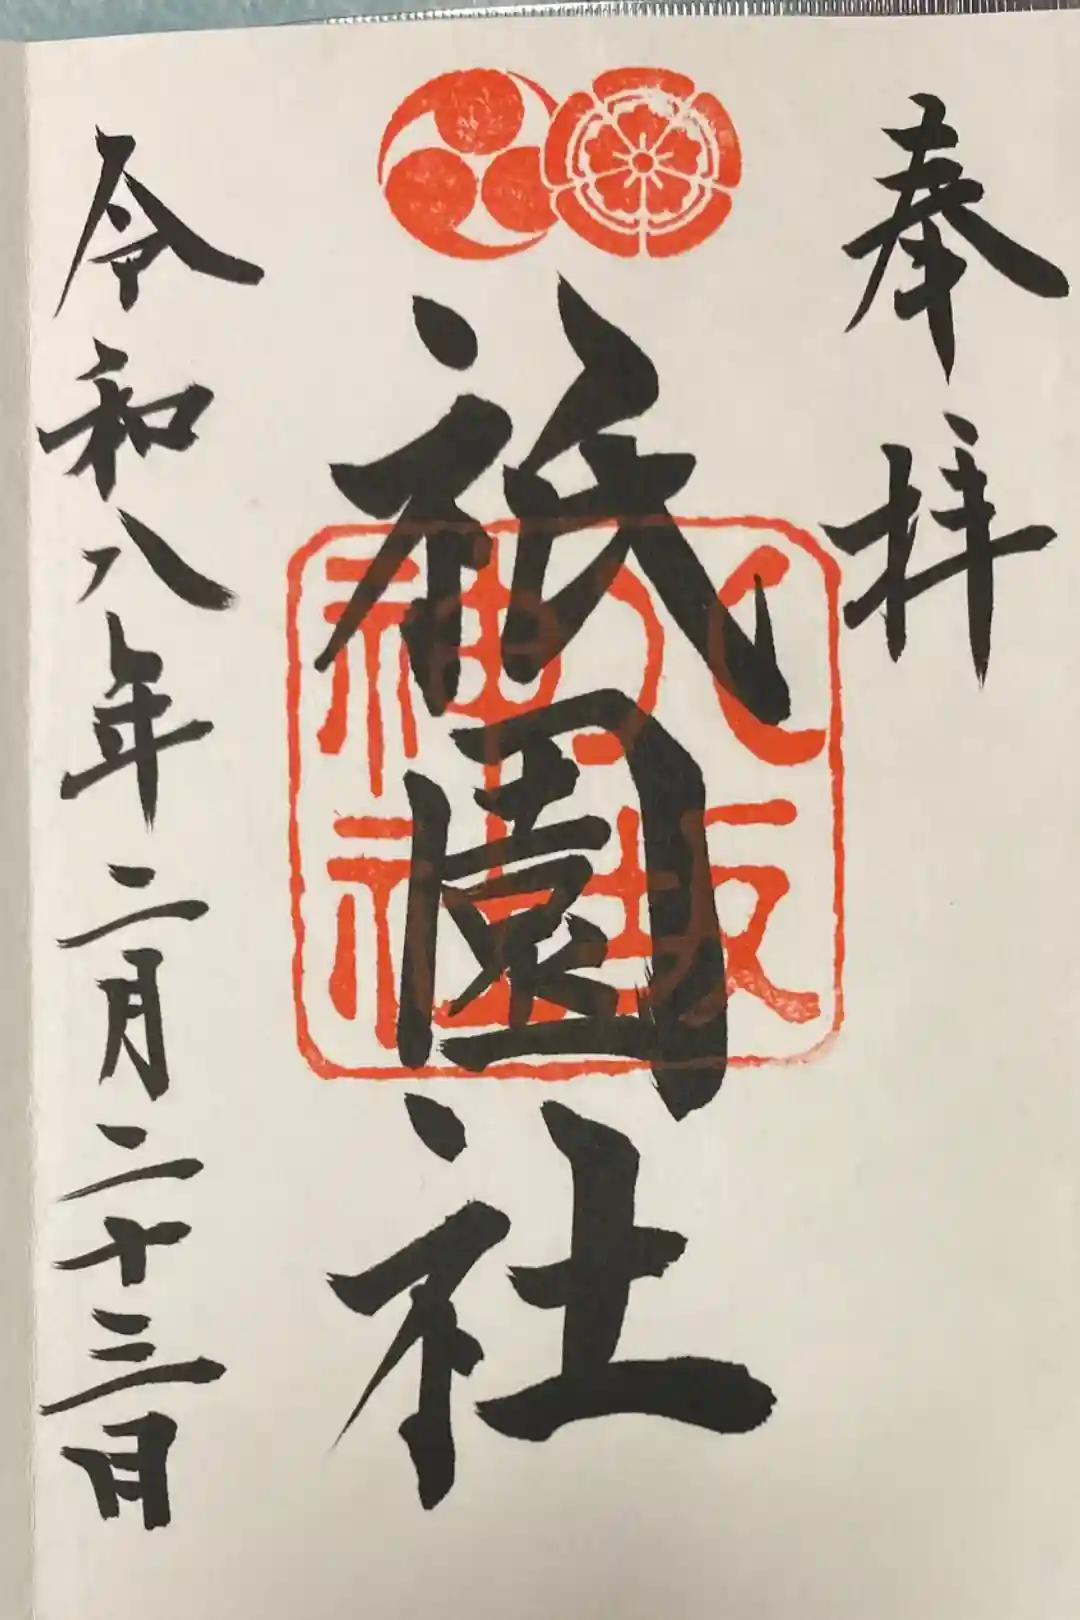 奉拝
祇園社
八坂
神社
令和八年二月二十三日